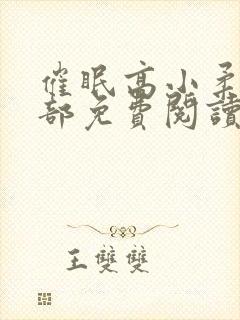 催眠高小柔
部免費閱讀
王雙雙